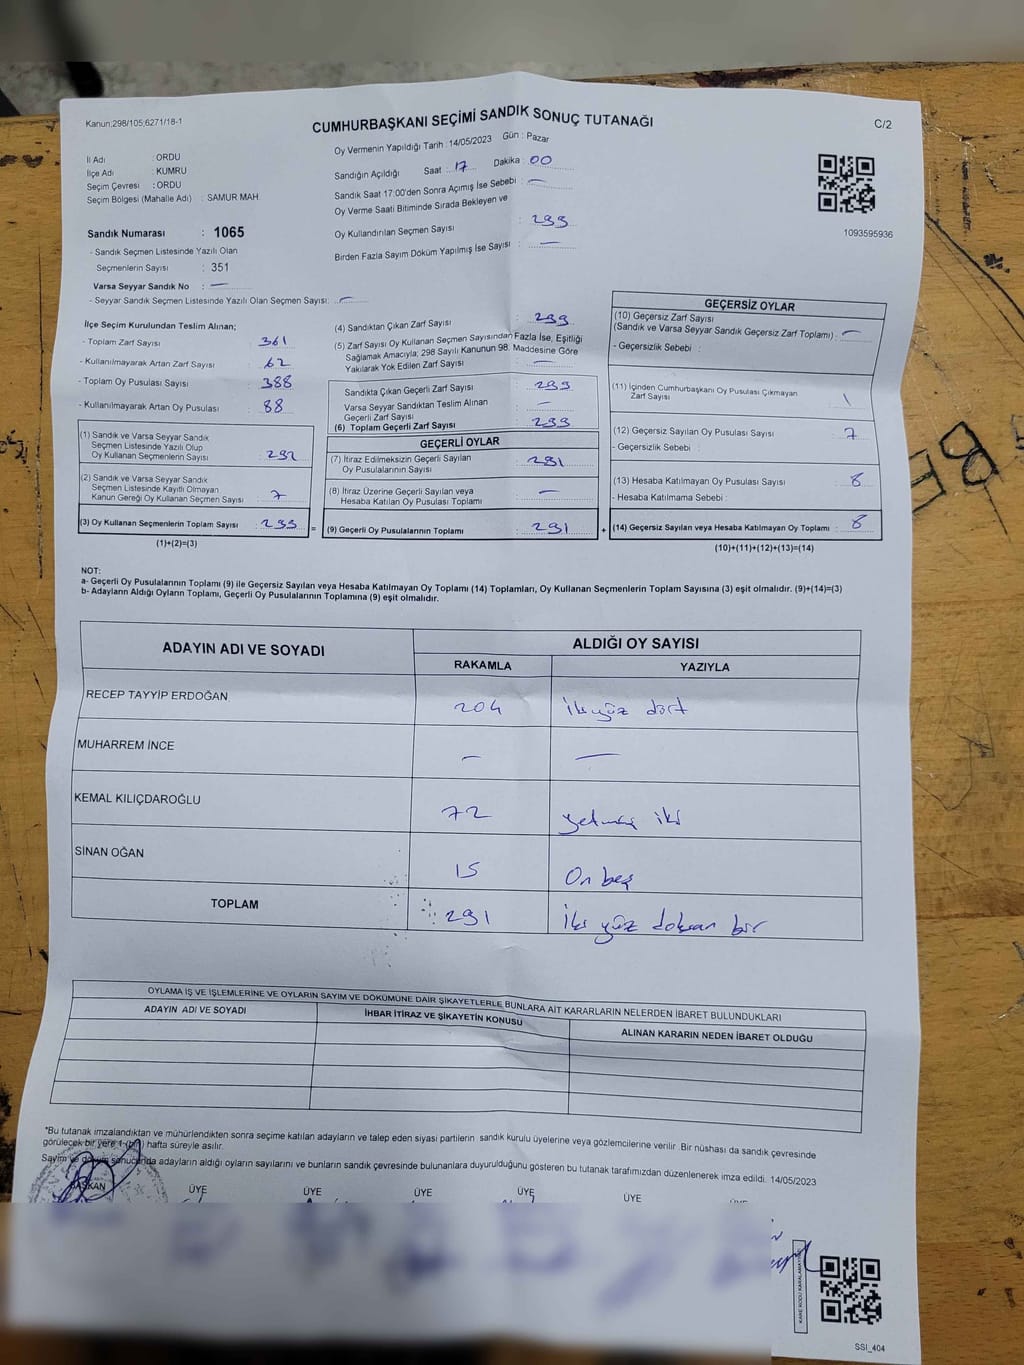 Kanun;298/105;6271/18-1
CUMHURBAŞKANI SEÇİMİ SANDIK SONUÇ TUTANAĞI
C/2
İl Adı : ORDU
İlçe Adı : KUMRU
Seçim Çevresi : ORDU
Seçim Bölgesi (Mahalle Adı) : SAMUR MAH.
Oy Vermenin Yapıldığı Tarih :14/05/2023 Gün : Pazar
Sandığın Açıldığı Saat : 17 Dakika : 00
Sandık Saat 17:00'den Sonra Açımış İse Sebebi : —
Oy Verme Saati Bitiminde Sırada Bekleyen ve
Oy Kullandırılan Seçmen Sayısı : 299
Birden Fazla Sayım Döküm Yapılmış İse Sayısı : —
1093595936
Sandık Numarası : 1065
- Sandık Seçmen Listesinde Yazılı Olan
Seçmenlerin Sayısı : 351
Varsa Seyyar Sandık No : —
- Seyyar Sandık Seçmen Listesinde Yazılı Olan Seçmen Sayısı: —
İlçe Seçim Kurulundan Teslim Alınan;
- Toplam Zarf Sayısı : 361
- Kullanılmayarak Artan Zarf Sayısı : 62
- Toplam Oy Pusulası Sayısı : 388
- Kullanılmayarak Artan Oy Pusulası : 88
(1) Sandık ve Varsa Seyyar Sandık
Seçmen Listesinde Yazılı Olup
Oy Kullanan Seçmenlerin Sayısı : 292
(2) Sandık ve Varsa Seyyar Sandık
Seçmen Listesinde Kayıtlı Olmayan
Kanun Gereği Oy Kullanan Seçmen Sayısı : 7
(3) Oy Kullanan Seçmenlerin Toplam Sayısı : 299 =
(1)+(2)=(3)
(4) Sandıktan Çıkan Zarf Sayısı : 299
(5) Zarf Sayısı Oy Kullanan Seçmen Sayısından Fazla İse, Eşitliği
Sağlamak Amacıyla; 298 Sayılı Kanunun 98. Maddesine Göre
Yakılarak Yok Edilen Zarf Sayısı : —
Sandıkta Çıkan Geçerli Zarf Sayısı : 299
Varsa Seyyar Sandıktan Teslim Alınan
Geçerli Zarf Sayısı : —
(6) Toplam Geçerli Zarf Sayısı : 299
GEÇERLİ OYLAR
(7) İtiraz Edilmeksizin Geçerli Sayılan
Oy Pusulalarının Sayısı : 291
(8) İtiraz Üzerine Geçerli Sayılan veya
Hesaba Katılan Oy Pusulası Toplamı : —
(9) Geçerli Oy Pusulalarının Toplamı : 291 +
GEÇERSİZ OYLAR
(10) Geçersiz Zarf Sayısı
(Sandık ve Varsa Seyyar Sandık Geçersiz Zarf Toplamı) : —
- Geçersizlik Sebebi :
(11) İçinden Cumhurbaşkanı Oy Pusulası Çıkmayan
Zarf Sayısı : 1
(12) Geçersiz Sayılan Oy Pusulası Sayısı : 7
- Geçersizlik Sebebi :
(13) Hesaba Katılmayan Oy Pusulası Sayısı : 8
- Hesaba Katılmama Sebebi :
(14) Geçersiz Sayılan veya Hesaba Katılmayan Oy Toplamı : 8
(10)+(11)+(12)+(13)=(14)
NOT:
a- Geçerli Oy Pusulalarının Toplamı (9) ile Geçersiz Sayılan veya Hesaba Katılmayan Oy Toplamı (14) Toplamları, Oy Kullanan Seçmenlerin Toplam Sayısına (3) eşit olmalıdır. (9)+(14)=(3)
b- Adayların Aldığı Oyların Toplamı, Geçerli Oy Pusulalarının Toplamına (9) eşit olmalıdır.
ADAYIN ADI VE SOYADI ALDIĞI OY SAYISI
RAKAMLA YAZIYLA
RECEP TAYYİP ERDOĞAN 204 İki yüz dört
MUHARREM İNCE — —
KEMAL KILIÇDAROĞLU 72 yetmiş iki
SİNAN OĞAN 15 On beş
TOPLAM 291 İki yüz doksan bir
OYLAMA İŞ VE İŞLEMLERİNE VE OYLARIN SAYIM VE DÖKÜMÜNE DAİR ŞİKAYETLERLE BUNLARA AİT KARARLARIN NELERDEN İBARET BULUNDUKLARI
ADAYIN ADI VE SOYADI İHBAR İTİRAZ VE ŞİKAYETİN KONUSU ALINAN KARARIN NEDEN İBARET OLDUĞU
*Bu tutanak imzalandıktan ve mühürlendikten sonra seçime katılan adayların ve talep eden siyasi partilerin sandık kurulu üyelerine veya gözlemcilerine verilir. Bir nüshası da sandık çevresinde
görülecek bir yere 1 (bir) hafta süreyle asılır.
Sayım ve döküm sonucunda adayların aldığı oyların sayılarını ve bunların sandık çevresinde bulunanlara duyurulduğunu gösteren bu tutanak tarafımızdan düzenlenerek imza edildi. 14/05/2023
BAŞKAN ÜYE ÜYE ÜYE ÜYE ÜYE
KARE KODU KARALAMAYINIZ
SSI_404